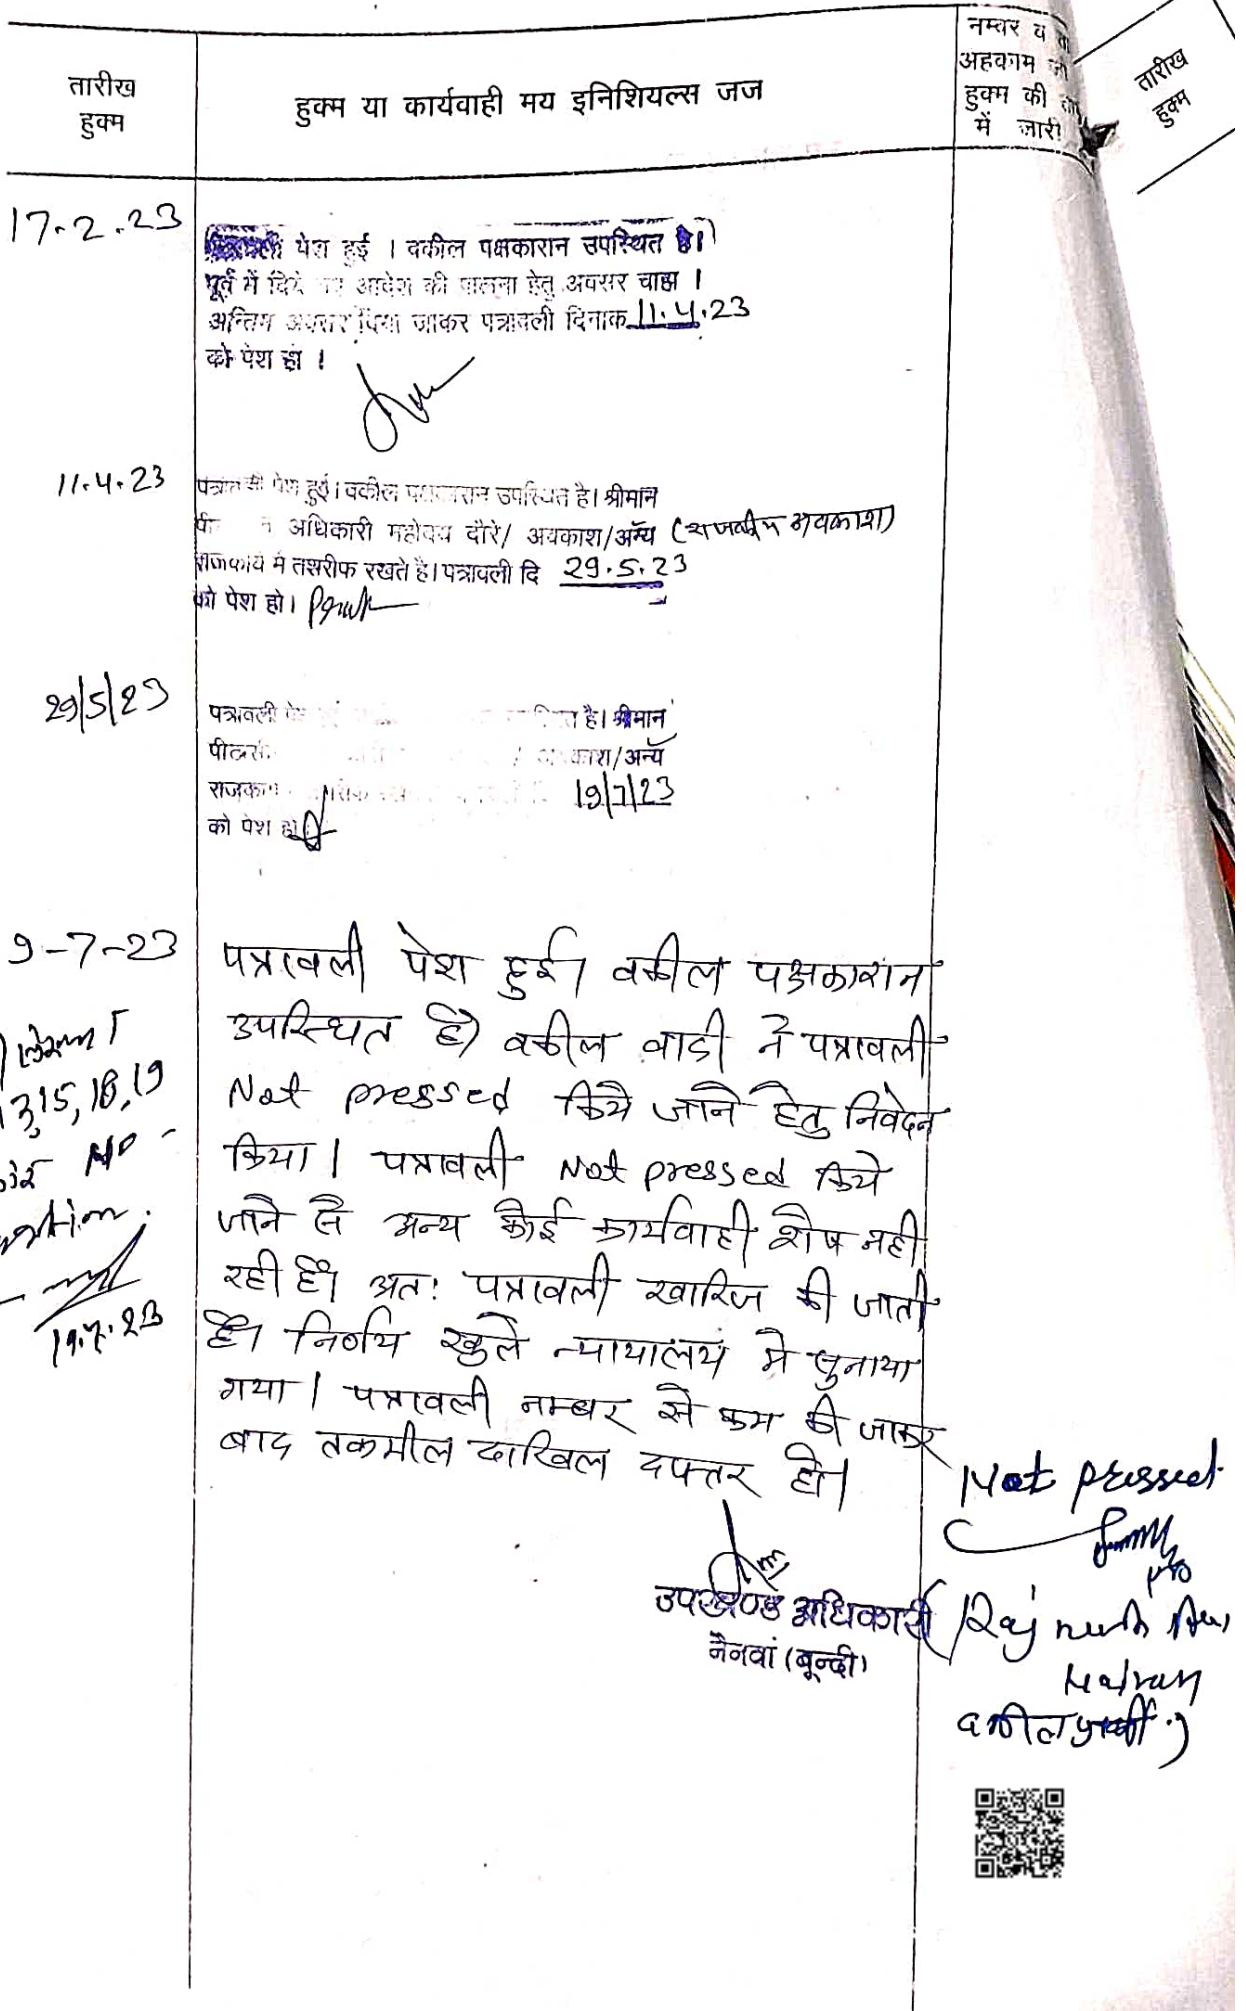 तारीख
हुक्म
हुक्म या कार्यवाही मय इनिशियल्स जज
नम्बर व
अहकाम
हुक्म की
में जारी
तारीख
हुक्म
17.2.23
पेश हुई । वकील पक्षकारान उपस्थित है।
पूर्व में दिये आदेश की पालना हेतु अवसर चाहा ।
अन्तिम अवसर दिया जाकर पत्रावली दिनाक 11.4.23
को पेश हो ।
11.4.23
पत्रावली पेश हुई। वकील पक्षकारान उपस्थित है। श्रीमान
अधिकारी महोदय दौरे/ अवकाश/अन्य (राजकीय अवकाश)
राजकार्य में तसरीफ रखते है। पत्रावली दि 29.5.23
को पेश हो।
29/5/23
पत्रावली है। श्रीमान
अवकाश/अन्य
19/7/23
को पेश हो
9-7-23
पत्रावली पेश हुई। वकील पक्षकारान
उपस्थित है। वकील वादी ने पत्रावली
Not pressed किये जाने हेतु निवेदन
किया। पत्रावली Not pressed किये
जाने से अन्य कोई कार्यवाही शेष नही
रही है। अतः पत्रावली खारिज की जाती
है। निर्णय खुले न्यायालय मे सुनाया
गया। पत्रावली नम्बर से कम की जाकर
बाद तकमील दाखिल दफ्तर हो।
3,15,18,19
19.7.23
Not pressed
उपखण्ड अधिकारी
नैनवां (बून्दी)
वकील प्रार्थी